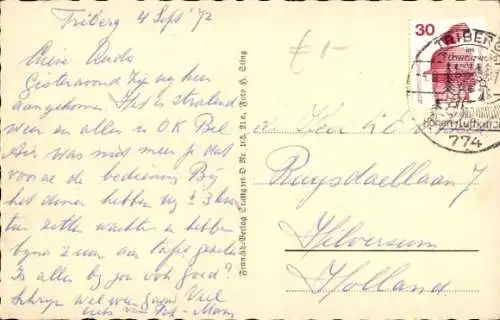 Triberg 4 Sept '72
Gisteravond zijn wij hier
aangekomen Het is stralend
weer en alles is O.K. Bel
Air was niet meer je dat
vooral de bediening Bij
het diner hebben wij ± 3 kwar
tier zitten wachten en hebben
bijna 2 uur aan tafel gezeten
Is alles bij jou ook goed?
Schrijf wel weer gauw Veel
liefs van Pep-Mam
£ 1-
30
TRIBERG
im Schwarzwald
774
Ruysdaellaan 7
Hilversum
Holland
Franckh-Verlag Stuttgart-O Nr. Foto H. Sting